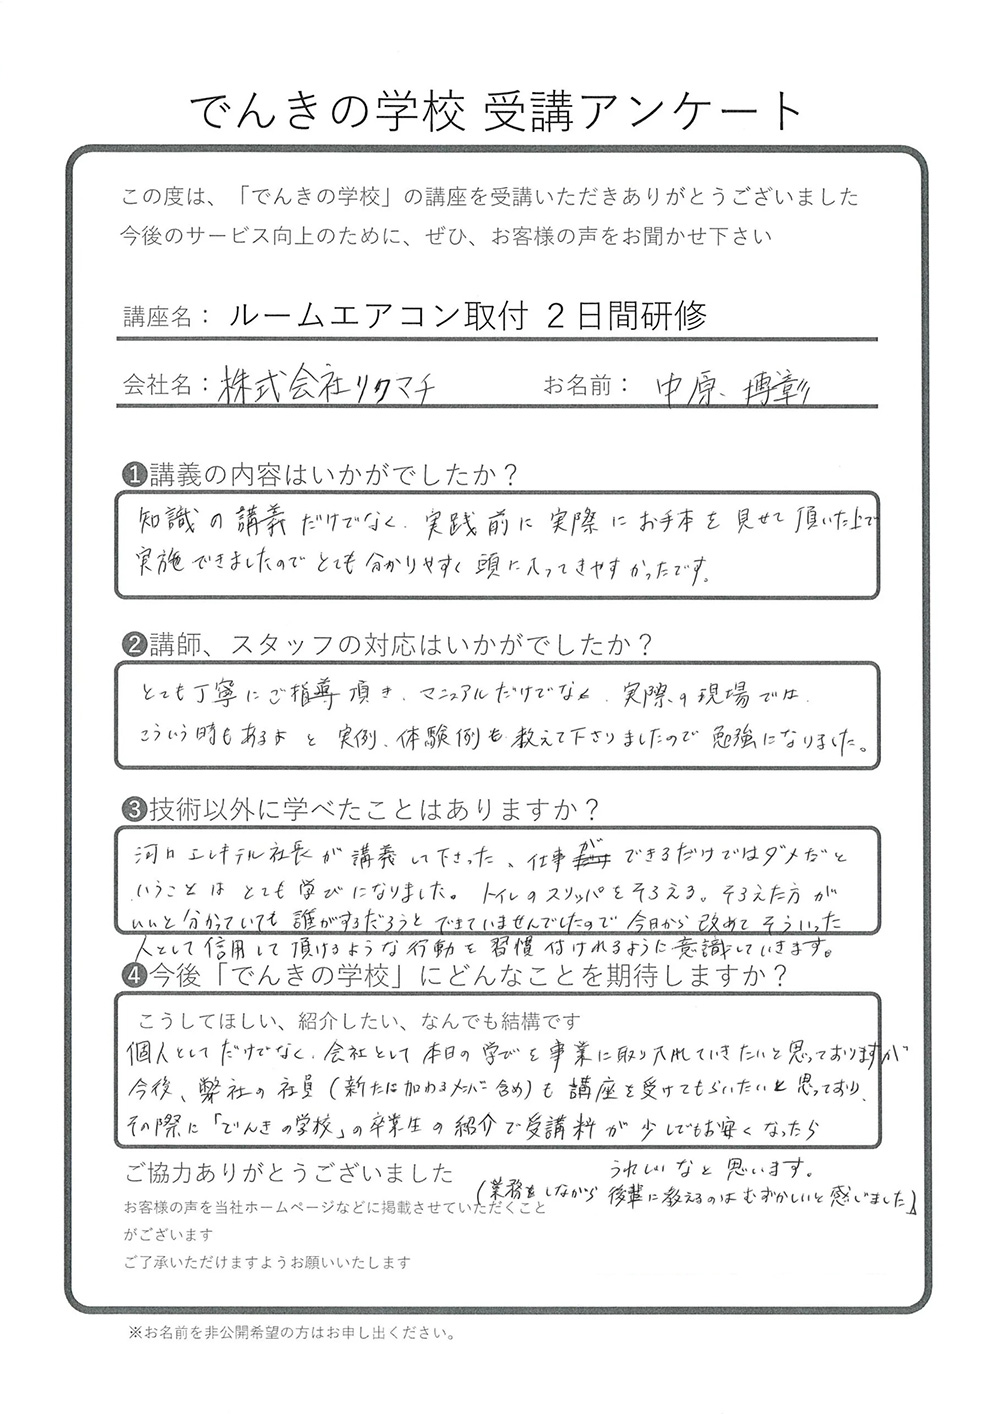 でんきの学校 受講アンケート
この度は、「でんきの学校」の講座を受講いただきありがとうございました
今後のサービス向上のために、ぜひ、お客様の声をお聞かせ下さい
講座名： ルームエアコン取付 ２日間研修
会社名：株式会社リクマチ お名前： 中原 博彰
❶講義の内容はいかがでしたか？
知識の講義だけでなく、実践前に実際にお手本を見せて頂いた上で
実施できましたのでとても分かりやすく頭に入ってきやすかったです。
❷講師、スタッフの対応はいかがでしたか？
とても丁寧にご指導頂き、マニュアルだけでなく、実際の現場では、
こういう時もあるよと実例、体験例も教えて下さりましたので勉強になりました。
❸技術以外に学べたことはありますか？
河口エレキテル社長が講義して下さった、仕事ができるだけではダメだと
いうことはとても学びになりました。トイレのスリッパをそろえる。そろえた方が
いいと分かっていても誰がするだろうとできていませんでしたので今日から改めてそういった
人として信用して頂けるような行動を習慣付けれるように意識していきます。
❹今後「でんきの学校」にどんなことを期待しますか？
こうしてほしい、紹介したい、なんでも結構です
個人としてだけでなく、会社として本日の学びを事業に取り入れていきたいと思っておりますが
今後、弊社の社員（新たに加わるメンバー含め）も講座を受けてもらいたいと思っており、
その際に「でんきの学校」の卒業生の紹介で受講料が少しでもお安くなったら
うれしいなと思います。
ご協力ありがとうございました
（業務をしながら後輩に教えるのはむずかしいと感じました）
お客様の声を当社ホームページなどに掲載させていただくこと
がございます
ご了承いただけますようお願いいたします
※お名前を非公開希望の方はお申し出ください。